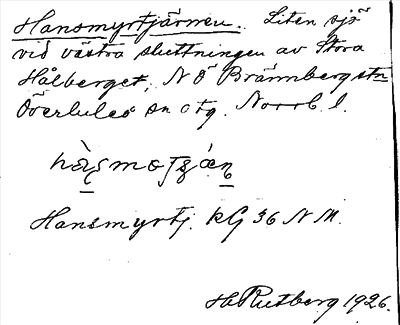 Hansmyrtjärnen. Liten sjö
vid västra sluttningen av Stora
Hålberget, NÖ Brännbergstn
Överluleå sn o tg. Norrb. l.
Hansmyrtj. KG 36 NM.
H Rutberg 1926.